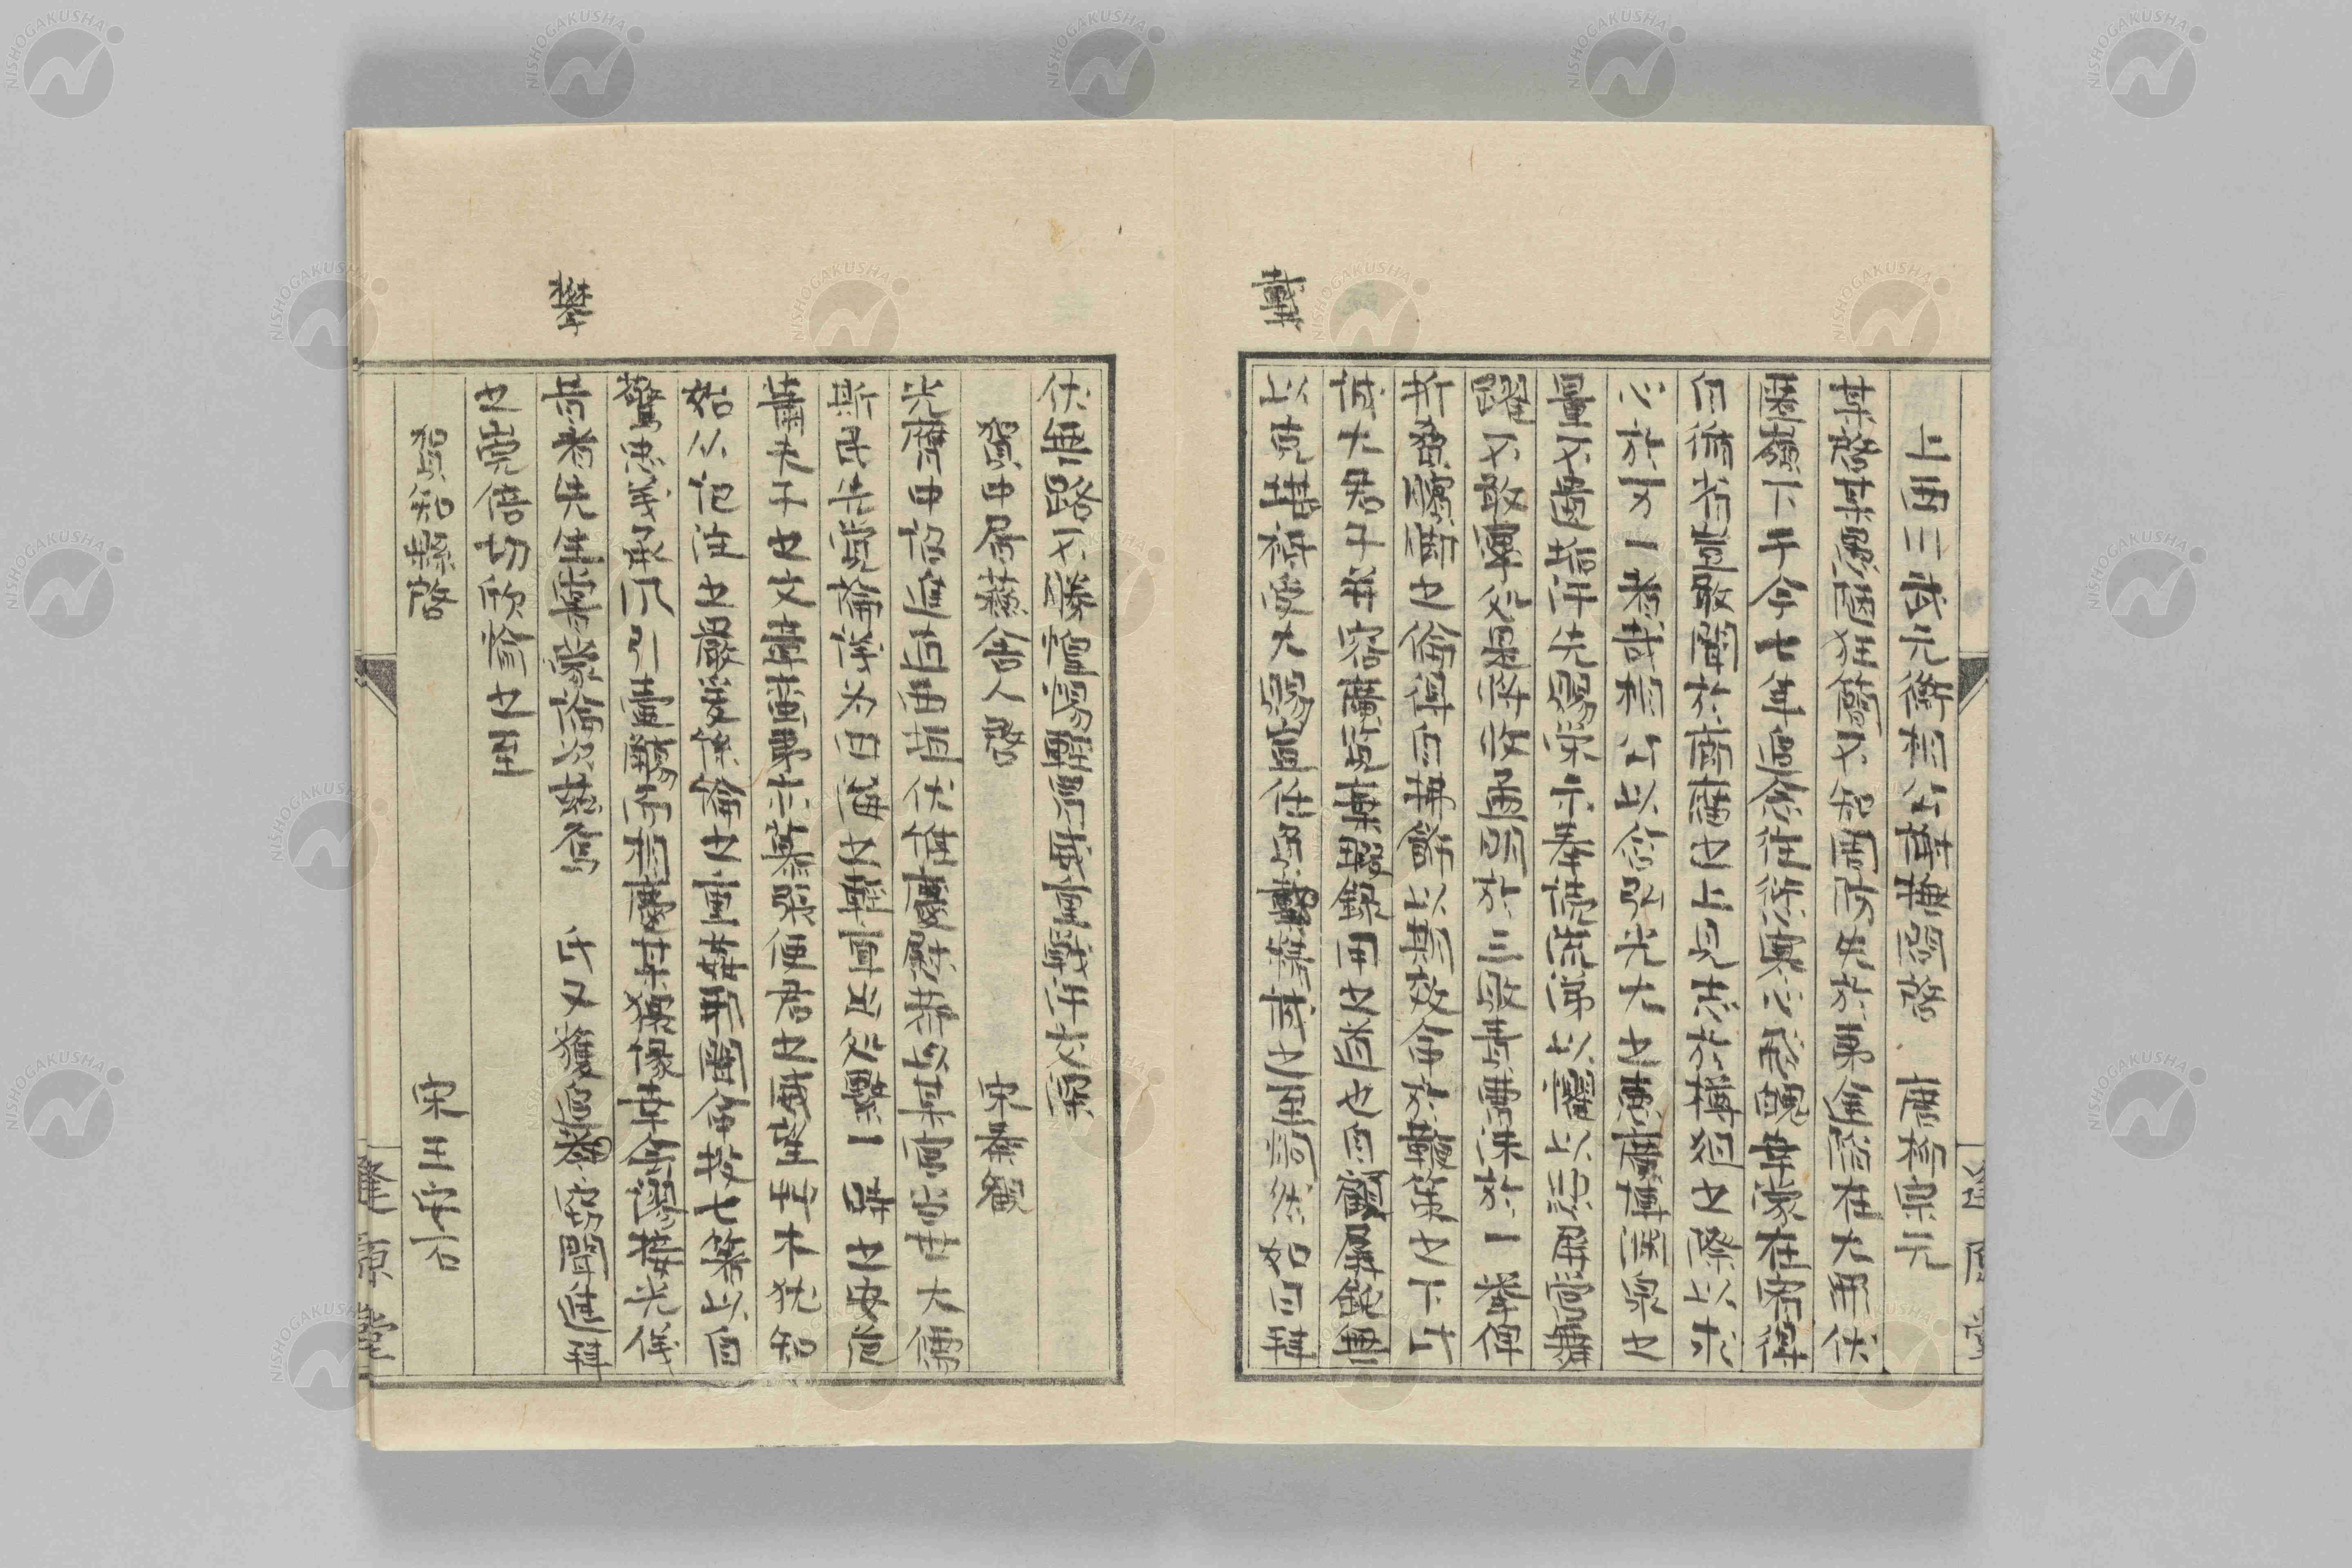 上西川武元衡相公謝撫問啓 唐柳宗元
某啓某愚陋狂簡不知周防失於夷途陷在大罪伏
匿嶺下于今七年追念往愆寒心飛魄幸蒙在宥得
自循省豈敢聞於廊廟之上見志於樽俎之際以求
心於万一者哉相公以含弘光大之德廣博淵泉之
量不遺垢汙先賜榮示奉讀流涕以懼以悲屏營舞
躍不敢寧処是將收孟明於三敗責曹沫於一擧俾
折脅臏脚之倫得自拂餙以期效命於鞭策之下此
誠大君子并容廣覧棄瑕録用之道也自顧孱鈍無
戴
以克堪祗受大賜豈任負戴精誠之至炯然如日拜
伏無路不勝惶惕輕冒威重戰汗交深
賀中居蘇舍人啓 宋秦觀
光膺中詔進直西垣伏惟慶慰恭以某官当世大儒
斯民先覚論議为四海之輕重出処繫一時之安危
蕭夫子之文章蛮夷亦慕 使君之威望草木犹知
始从记注之嚴 綸之重 命 七 以自
驚 承风 而相慶某 光儀
攀
 先生 蒙 氏又獲 攀 竊聞進拜
之 倍切欣 之至
賀知縣啓 宋王安石